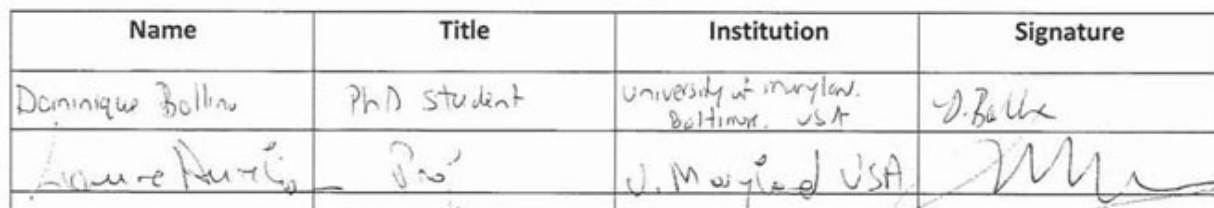 Name Title Institution Signature
Dominique Bollino PhD Student University of Maryland.
Baltimore. USA D.Bollino
Laure Aurelian Prof U. Maryland USA